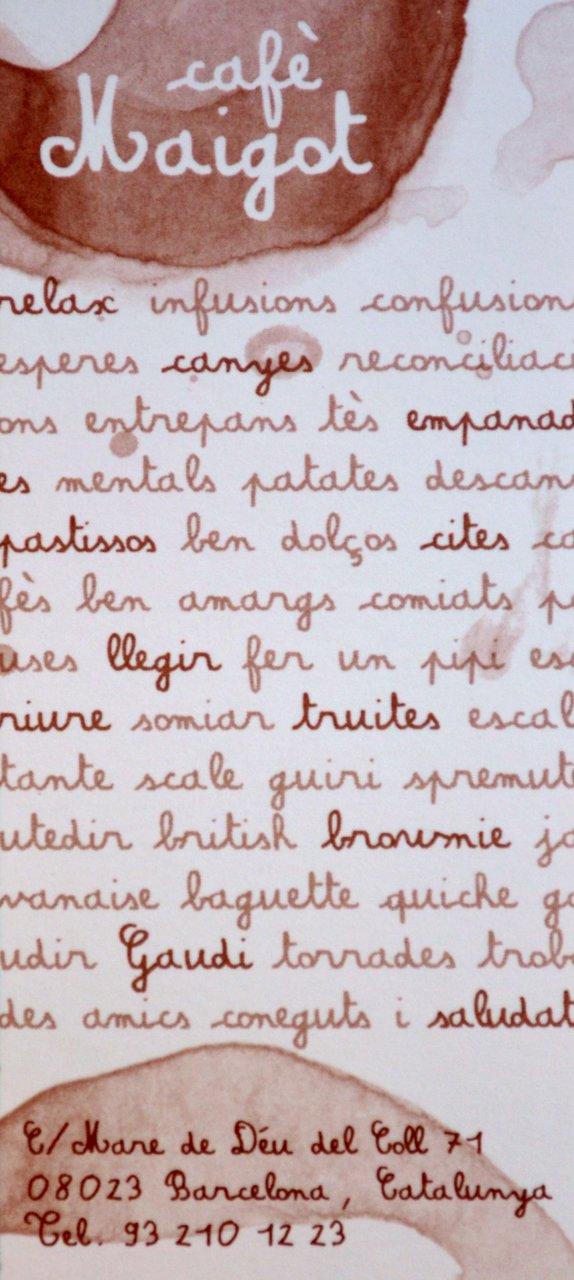 cafè
Maigot
relax infusions confusion
esperes canyes reconciliaci
ons entrepans tès empanad
es mentals patates descans
pastissos ben dolços cites ca
fès ben amargs comiats pa
uses llegir fer un pipi esc
riure somiar truites escal
tante scale guiri spremute
utedir british brownie ja
vanaise baguette quiche ga
udir Gaudi torrades trobo
des amics coneguts i saludat
C/Mare de Déu del Coll 71
08023 Barcelona, Catalunya
Tel. 93 210 12 23